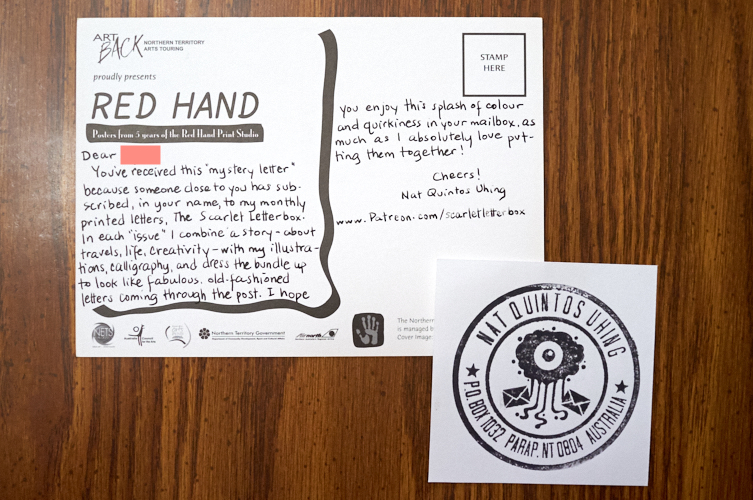 ART BACK NORTHERN TERRITORY
ARTS TOURING
proudly presents
RED HAND
Posters from 5 years of the Red Hand Print Studio
Dear
You've received this "mystery letter"
because someone close to you has sub-
scribed, in your name, to my monthly
printed letters, The Scarlet Letterbox.
In each "issue" I combine a story - about
travels, life, creativity - with my illustra-
tions, calligraphy, and dress the bundle up
to look like fabulous, old-fashioned
letters coming through the post. I hope
STAMP
HERE
you enjoy this splash of colour
and quirkiness in your mailbox, as
much as I absolutely love put-
ting them together!
Cheers!
Nat Quintos Uhing
www.Patreon.com/scarletletterbox
NETS
Northern Territory Government
Airnorth
The Northern
is managed b
Cover Image
NAT QUINTOS UHING
P.O. BOX 1032 PARAP. NT 0804 AUSTRALIA